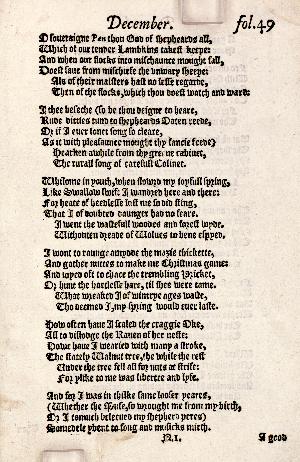 December.
fol.49
O soueraigne Pan thou God of shepheards all,
Which of our tender Lambkins takest keepe:
And when our flocks into mischaunce mought fall,
Doest saue from mischiefe the vnwary sheepe:
Als of their maisters hast no lesse regarde,
Then of the flocks, which thou doest watch and ward:
I thee beseche (so be thou deigne to heare,
Rude ditties tund to shepheards Oaten reede,
Or if I euer sonet song so cleare,
As it with pleasaunce mought thy fancie feede)
Hearken awhile from thy greene cabinet,
The rurall song of carefull Colinet.
Whilome in youth, when flowrd my ioyfull spring,
Like Swallow swift I wandred here and there:
For heate of heedlesse lust me so did sting,
That I of doubted daunger had no feare.
I went the wastefull woodes and forest wyde,
Withouten dreade of Wolues to bene espyed.
I wont to raunge amydde the mazie thickette,
And gather nuttes to make me Christmas game:
And ioyed oft to chace the trembling Pricket,
Or hunt the hartlesse hare, til shee were tame.
What wreaked I of wintrye ages waste,
Tho deemed I, my spring would euer laste.
How often haue I scaled the craggie Oke,
All to dislodge the Rauen of her neste:
Howe haue I wearied with many a stroke,
The stately Walnut tree, the while the rest
Under the tree fell all for nuts at strife:
For ylike to me was libertee and lyfe.
And for I was in thilke same looser yeares,
(Whether the Muse, so wrought me from my birth,
Or I tomuch beleeued my shepherd peres)
Somedele ybent to song and musicks mirth.
N.1.
A good